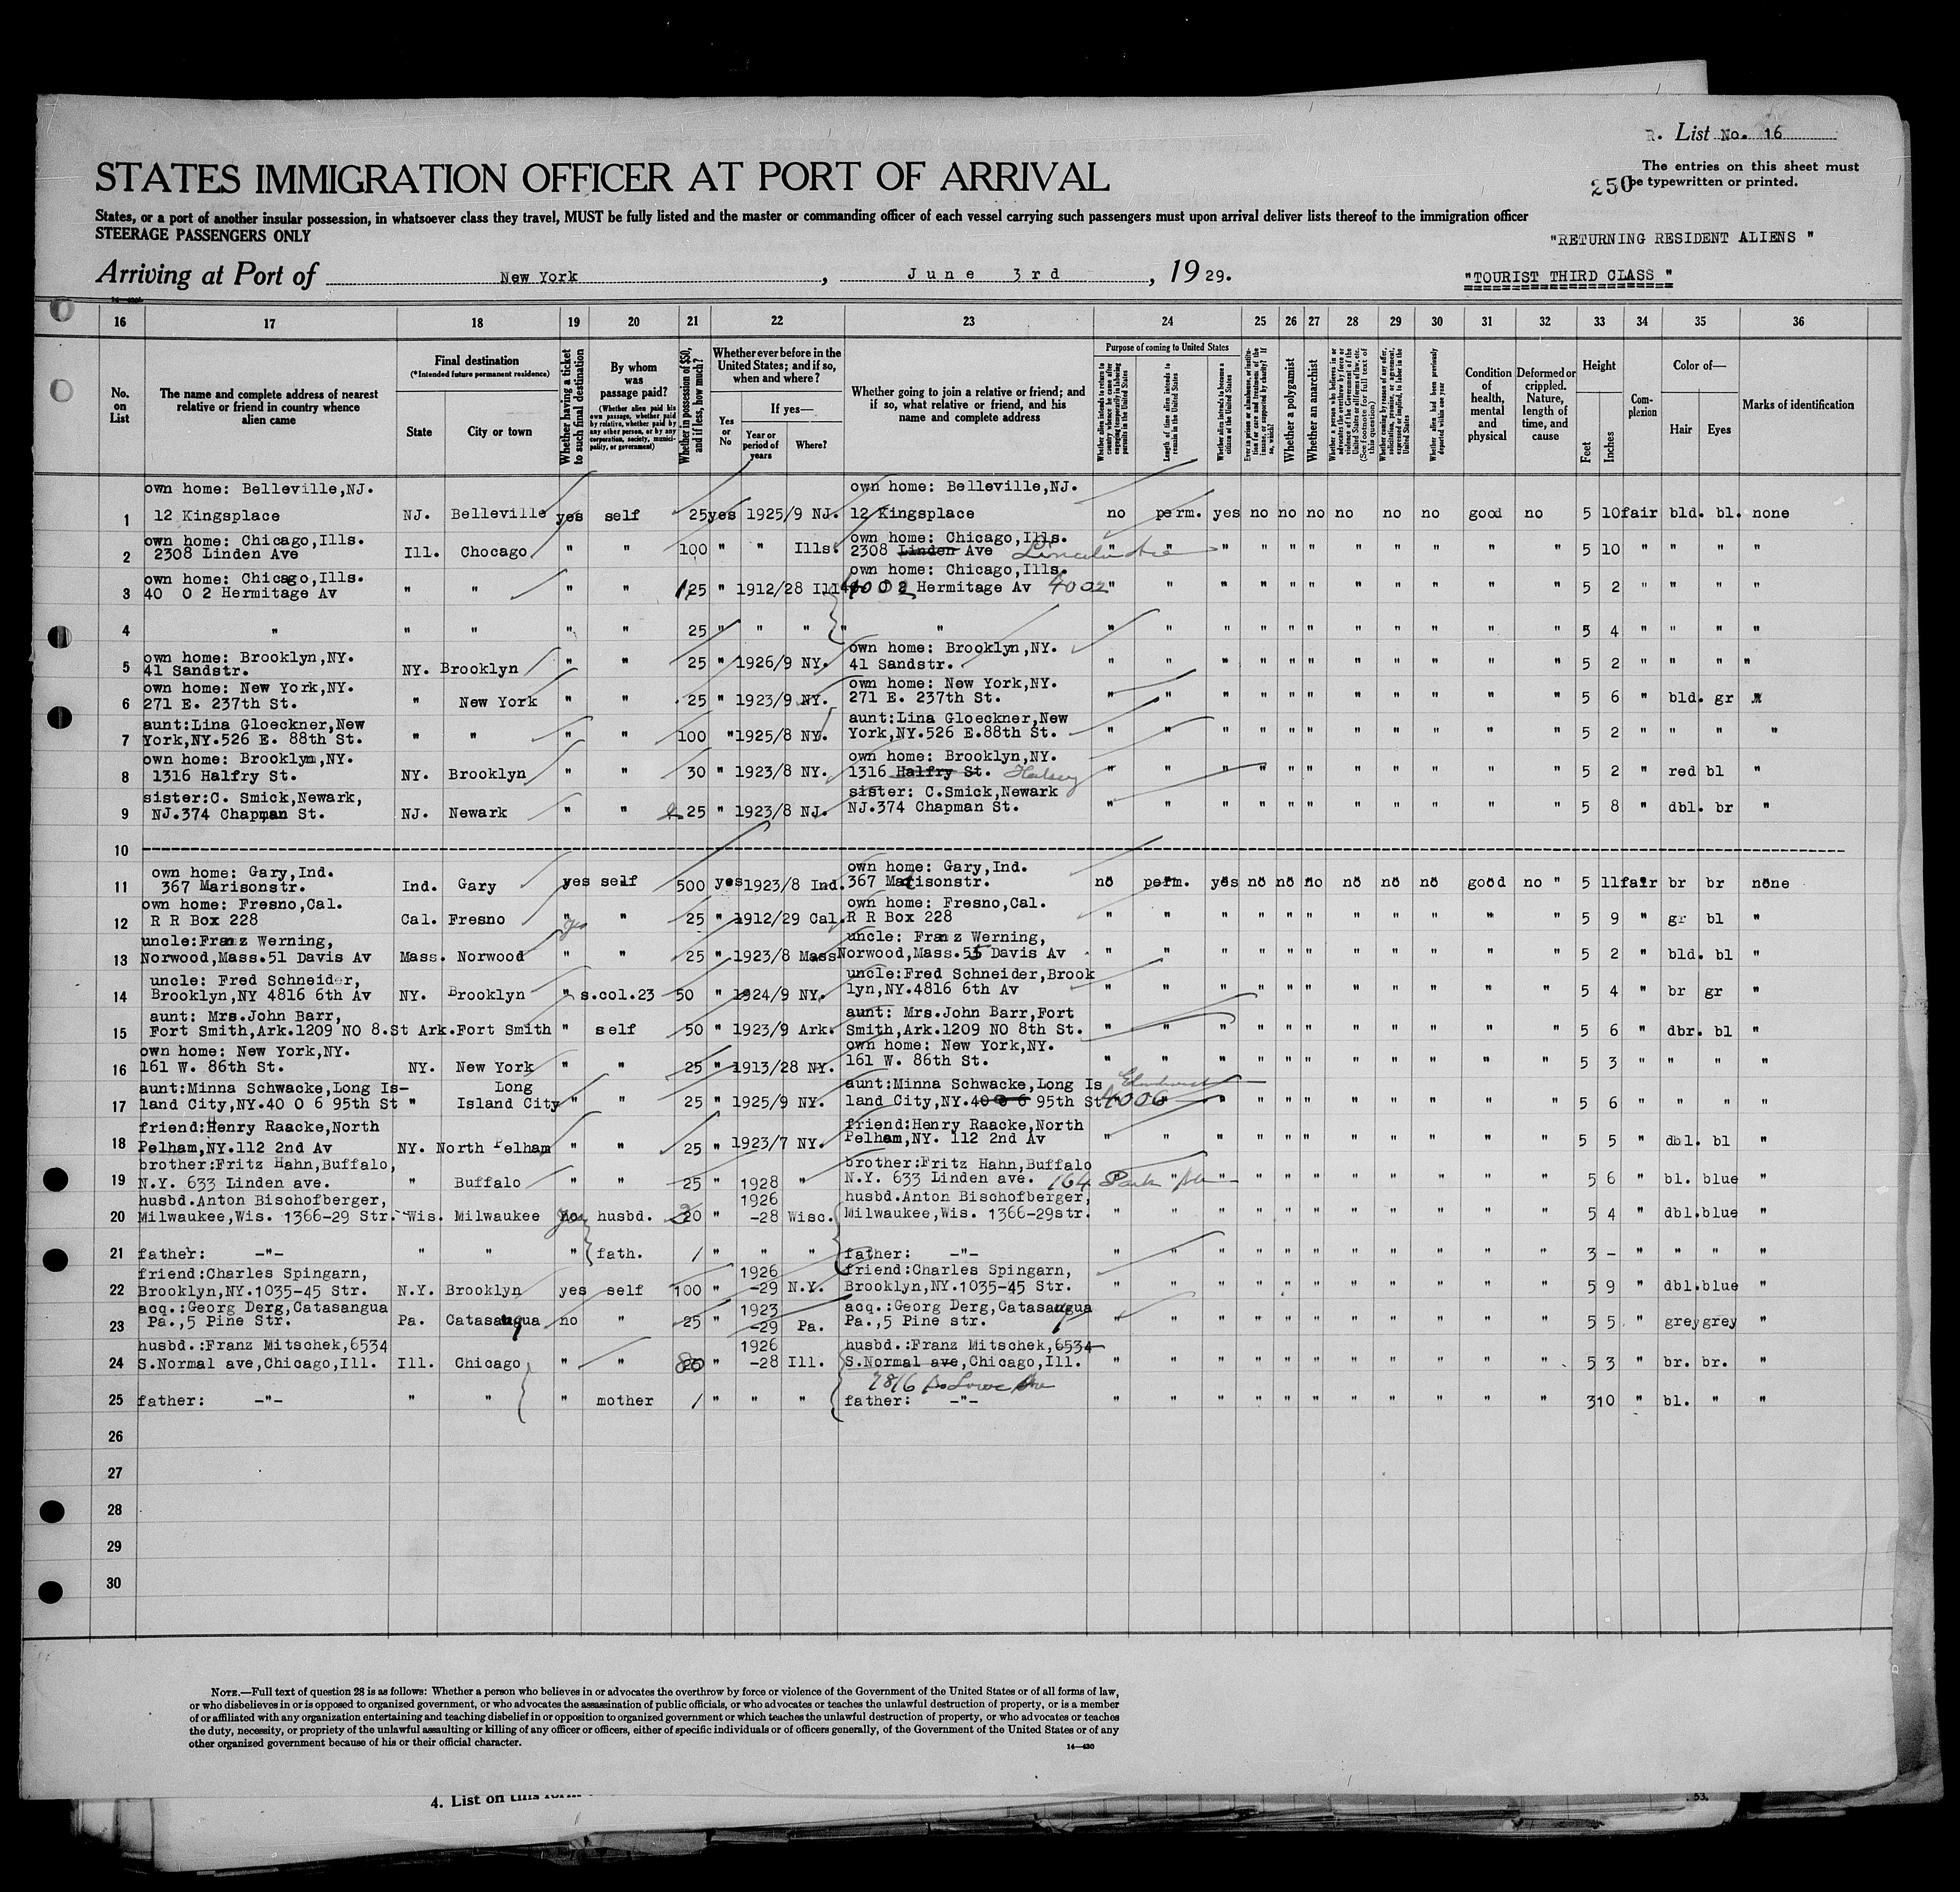 R. List No. 16
The entries on this sheet must
be typewritten or printed.
250
STATES IMMIGRATION OFFICER AT PORT OF ARRIVAL
States, or a port of another insular possession, in whatsoever class they travel, MUST be fully listed and the master or commanding officer of each vessel carrying such passengers must upon arrival deliver lists thereof to the immigration officer
STEERAGE PASSENGERS ONLY
"RETURNING RESIDENT ALIENS "
Arriving at Port of New York, June 3rd, 19 29.
"TOURIST THIRD CLASS "
16 17 18 19 20 21 22 23 24 25 26 27 28 29 30 31 32 33 34 35 36
No. on List
The name and complete address of nearest relative or friend in country whence alien came
Final destination
(*Intended future permanent residence)
State
City or town
Whether having a ticket to such final destination
By whom was passage paid?
(Whether alien paid his own passage, whether paid by relative, whether paid by any other person, or by any corporation, society, municipality, or government)
Whether in possession of $50, and if less, how much?
Whether ever before in the United States; and if so, when and where?
Yes or No
If yes—
Year or period of years
Where?
Whether going to join a relative or friend; and if so, what relative or friend, and his name and complete address
Purpose of coming to United States
Whether alien intends to return to country whence he came after engaging temporarily in laboring pursuits in the United States
Length of time alien intends to remain in the United States
Whether alien intends to become a citizen of the United States
Ever in prison or almshouse, or institution for care and treatment of the insane, or supported by charity? If so, which?
Whether a polygamist
Whether an anarchist
Whether a person who believes in or advocates the overthrow by force or violence of the Government of the United States or all forms of law, etc. (See footnote for full text of this question)
Whether coming by reason of any offer, solicitation, promise, or agreement, expressed or implied, to labor in the United States
Whether alien had been previously deported within one year
Condition of health, mental and physical
Deformed or crippled. Nature, length of time, and cause
Height
Feet
Inches
Complexion
Color of—
Hair
Eyes
Marks of identification
own home: Belleville,NJ. own home: Belleville,NJ.
1 12 Kingsplace NJ. Belleville yes self 25 yes 1925/9 NJ. 12 Kingsplace no perm. yes no no no no no no good no 5 10 fair bld. bl. none
own home: Chicago,Ills. own home: Chicago,Ills.
2 2308 Linden Ave Ill. Chocago " " 100 " " Ills. 2308 Linden Ave Lincoln Ave " " " " " " " " " " " 5 10 " " " "
own home: Chicago,Ills. own home: Chicago,Ills.
3 40 0 2 Hermitage Av " " " " 125 " 1912/28 Ill 4002 Hermitage Av 4002 " " " " " " " " " " " 5 2 " " " "
4 " " " " " 25 " " " " " " " " " " " " " " " " " 5 4 " " " "
own home: Brooklyn,NY. own home: Brooklyn,NY.
5 41 Sandstr. NY. Brooklyn " " 25 " 1926/9 NY. 41 Sandstr. " " " " " " " " " " " 5 2 " " " "
own home: New York,NY. own home: New York,NY.
6 271 E. 237th St. " New York " " 25 " 1923/9 NY. 271 E. 237th St. " " " " " " " " " " " 5 6 " bld. gr "
aunt:Lina Gloeckner,New aunt:Lina Gloeckner,New
7 York,NY.526 E. 88th St. " " " " 100 " 1925/8 NY. York,NY.526 E.88th St. " " " " " " " " " " " 5 2 " " " "
own home: Brooklyn,NY. own home: Brooklyn,NY.
8 1316 Halfry St. NY. Brooklyn " " 30 " 1923/8 NY. 1316 Halfry St. Halsey " " " " " " " " " " " 5 2 " red bl "
sister:C. Smick,Newark, sister: C.Smick,Newark
9 NJ.374 Chapman St. NJ. Newark " " 25 " 1923/8 NJ. NJ.374 Chapman St. " " " " " " " " " " " 5 8 " dbl. br "
10
own home: Gary,Ind. own home: Gary,Ind.
11 367 Marisonstr. Ind. Gary yes self 500 yes 1923/8 Ind. 367 Marisonstr. no perm. yes no no no no no no good no " 5 11 fair br br none
own home: Fresno,Cal. own home: Fresno,Cal.
12 R R Box 228 Cal. Fresno " yes " 25 " 1912/29 Cal. R R Box 228 " " " " " " " " " " " 5 9 " gr bl "
uncle:Franz Werning, uncle: Franz Werning,
13 Norwood,Mass.51 Davis Av Mass. Norwood " " 25 " 1923/8 Mass Norwood,Mass.51 Davis Av " " " " " " " " " " " 5 2 " bld. bl "
uncle: Fred Schneider, uncle:Fred Schneider,Brook
14 Brooklyn,NY 4816 6th Av NY. Brooklyn " s.col.23 50 " 1924/9 NY. lyn,NY.4816 6th Av " " " " " " " " " " " 5 4 " br gr "
aunt: Mrs.John Barr, aunt: Mrs.John Barr,Fort
15 Fort Smith,Ark.1209 NO 8.St Ark.Fort Smith " self 50 " 1923/9 Ark. Smith,Ark.1209 NO 8th St. " " " " " " " " " " " 5 6 " dbr. bl "
own home: New York,NY. own home: New York,NY.
16 161 W. 86th St. NY. New York " " 25 " 1913/28 NY. 161 W. 86th St. " " " " " " " " " " " 5 3 " " " "
aunt:Minna Schwacke,Long Is- Long aunt:Minna Schwacke,Long Is Elmhurst
17 land City,NY.40 0 6 95th St " Island City " " 25 " 1925/9 NY. land City,NY.40 0 6 95th St. 4006 " " " " " " " " " " 5 6 " " " "
friend:Henry Raacke,North friend:Henry Raacke,North
18 Pelham,NY.112 2nd Av NY. North Pelham " " 25 " 1923/7 NY. Pelham,NY. 112 2nd Av " " " " " " " " " " " 5 5 " dbl. bl "
brother:Fritz Hahn,Buffalo, brother:Fritz Hahn,Buffalo
19 N.Y. 633 Linden ave. " Buffalo " " 25 " 1928 " N.Y. 633 Linden ave. 164 Park Av " " " " " " " " " " 5 6 " bl. blue "
husbd.Anton Bischofberger, 1926 husbd.Anton Bischofberger,
20 Milwaukee,Wis. 1366-29 Str. Wis. Milwaukee no yes husbd. 20 " -28 Wisc. Milwaukee,Wis. 1366-29str. " " " " " " " " " " " 5 4 " dbl.blue "
21 father: -"- " " " fath. / " " " father: -"- " " " " " " " " " " " 3 - " " " "
friend:Charles Spingarn, 1926 friend:Charles Spingarn,
22 Brooklyn,NY.1035-45 Str. N.Y. Brooklyn yes self 100 " -29 N.Y. Brooklyn,NY.1035-45 Str. " " " " " " " " " " " 5 9 " dbl.blue "
acq.:Georg Derg,Catasangua 1923 acq.:Georg Derg,Catasauqua
23 Pa.,5 Pine Str. Pa. Catasauqua no " 25 " -29 Pa. Pa.,5 Pine str. " " " " " " " " " " " 5 5 " grey grey "
husbd.:Franz Mitschek,6534 1926 husbd.:Franz Mitschek,6534
24 S.Normal ave,Chicago,Ill. Ill. Chicago " " 80 " -28 Ill. S.Normal ave,Chicago,Ill. " " " " " " " " " " " 5 3 " br. br. "
7816 So Lowe Ave
25 father: -"- " " " mother / " " " father: -"- " " " " " " " " " " " 3 10 " bl. " "
26
27
28
29
30
NOTE.—Full text of question 28 is as follows: Whether a person who believes in or advocates the overthrow by force or violence of the Government of the United States or of all forms of law,
or who disbelieves in or is opposed to organized government, or who advocates the assassination of public officials, or who advocates or teaches the unlawful destruction of property, or is a member
of or affiliated with any organization entertaining and teaching disbelief in or opposition to organized government or which teaches the unlawful destruction of property, or who advocates or teaches
the duty, necessity, or propriety of the unlawful assaulting or killing of any officer or officers, either of specific individuals or of officers generally, of the Government of the United States or of any
other organized government because of his or their official character.
14—430
4. List on this form
53.